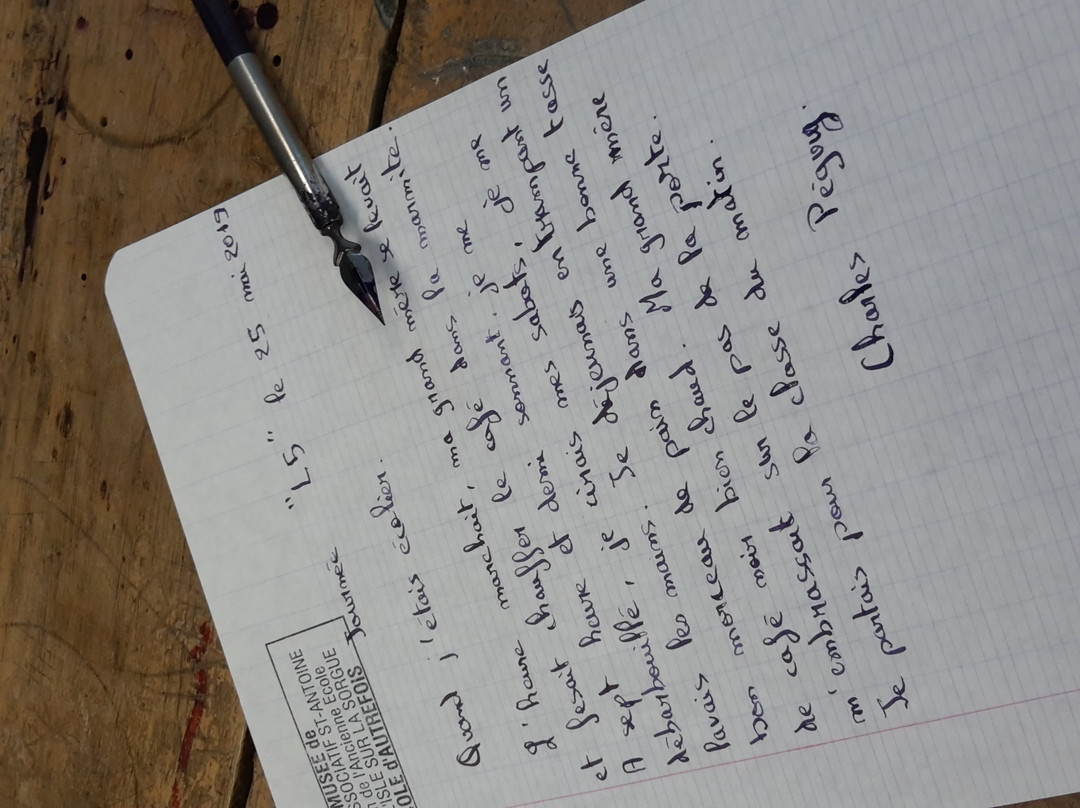 MUSÉE de
SSOCIATIF ST-ANTOINE
n de l'Ancienne Ecole
ISLE SUR LA SORGUE
OLE d'AUTREFOIS
Journée "L5" le 25 mai 2019
Quand j'étais écolier.
L'heure marchait, ma grand mère se levait
et fesait chauffer le café dans la marmite.
A sept heure et demi sonnant, je me
débarbouillé, je cirais mes sabots, je me
lavais les mains. Je déjeunais en trampant un
bon morceau de pain dans une bonne tasse
de café noir bien chaud. Ma grand mère
m'embrassait sur le pas de la porte.
Je partais pour la classe du matin.
Charles Péguy.